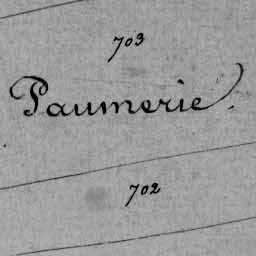 703
Paumerie.
702